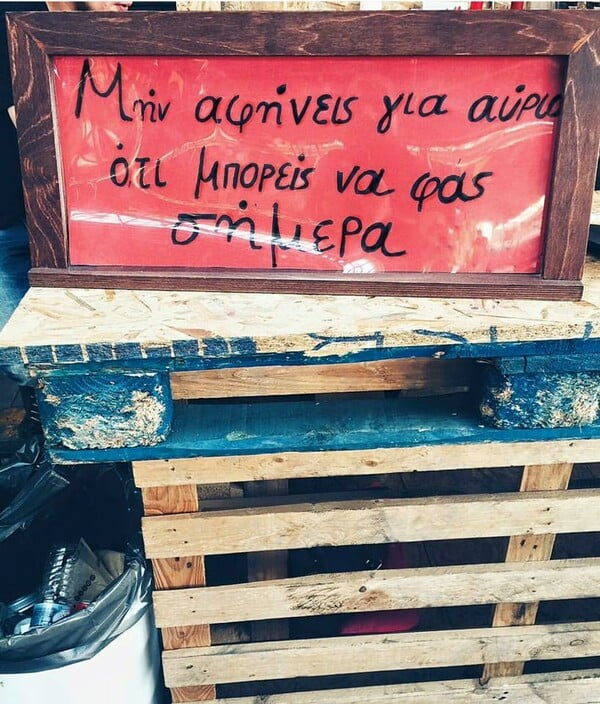 Μήν αφήνεις για αύριο
ότι μπορείς να φάς
σήμερα